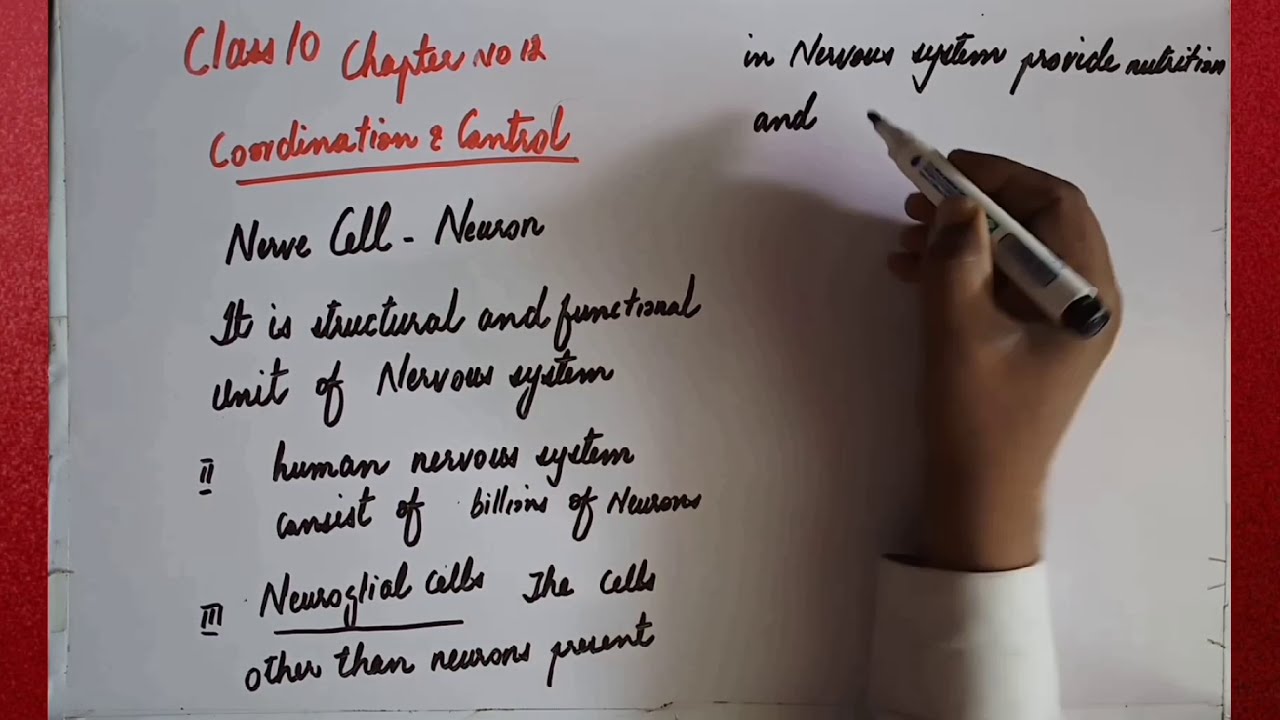 Class 10 Chapter No 12
Coordination & Control
Nerve Cell - Neuron
It is structural and functional
unit of Nervous system
II human nervous system
consist of billions of Neurons
III Neuroglial cells The cells
other than neurons present
in Nervous system provide nutrition
and